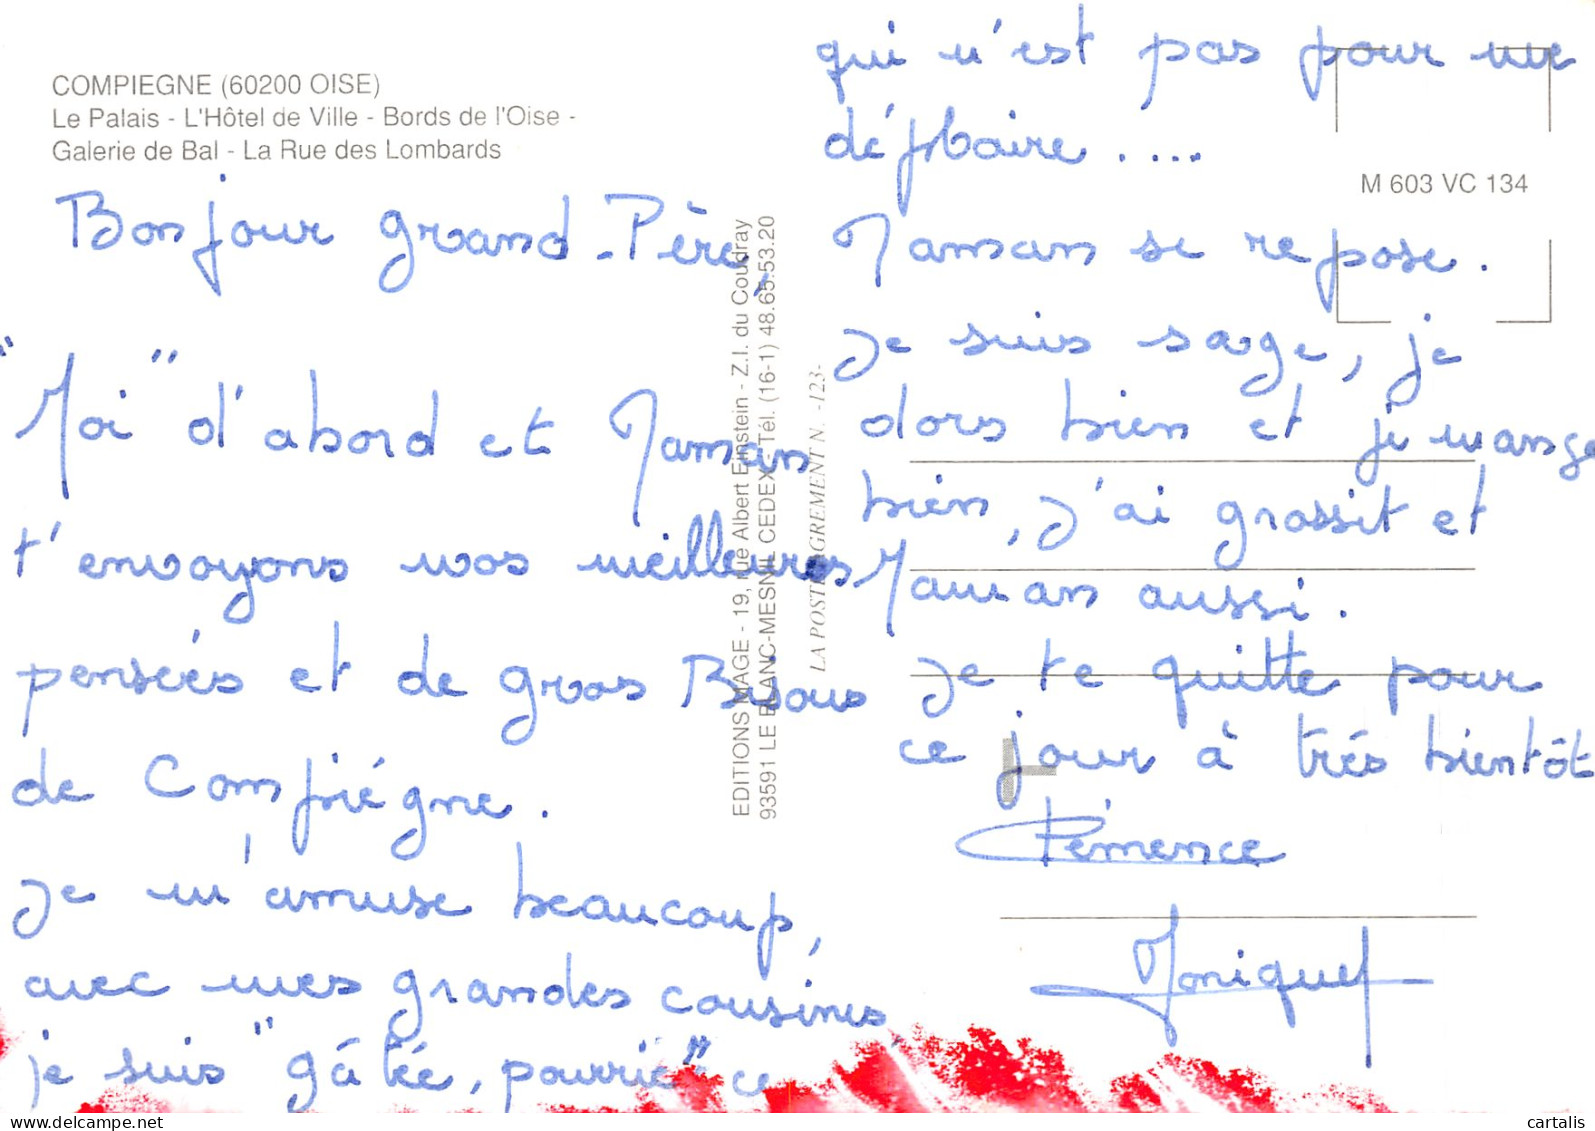 COMPIEGNE (60200 OISE)
Le Palais - L'Hôtel de Ville - Bords de l'Oise -
Galerie de Bal - La Rue des Lombards
Bonjour grand-Père,
"Moi" d'abord et Maman
t'envoyons nos meilleures
pensées et de gros Bisous
de Compiégne.
Je m'amuse beaucoup,
avec mes grandes cousines
je suis "gâtée, pourrie" ce
qui n'est pas pour me
déplaire....
Maman se repose.
Je suis sage, je
dors bien et je mange
bien, j'ai grossit et
Maman aussi.
Je te quitte pour
ce jour à trés bientôt
Clémence
Monique
M 603 VC 134
EDITIONS MAGE - 19, rue Albert Einstein - Z.I. du Coudray
93591 LE BLANC-MESNIL CEDEX - Tél. (16-1) 48.65.53.20
LA POSTE AGREMENT N. -123-
cartalis
delcampe.net